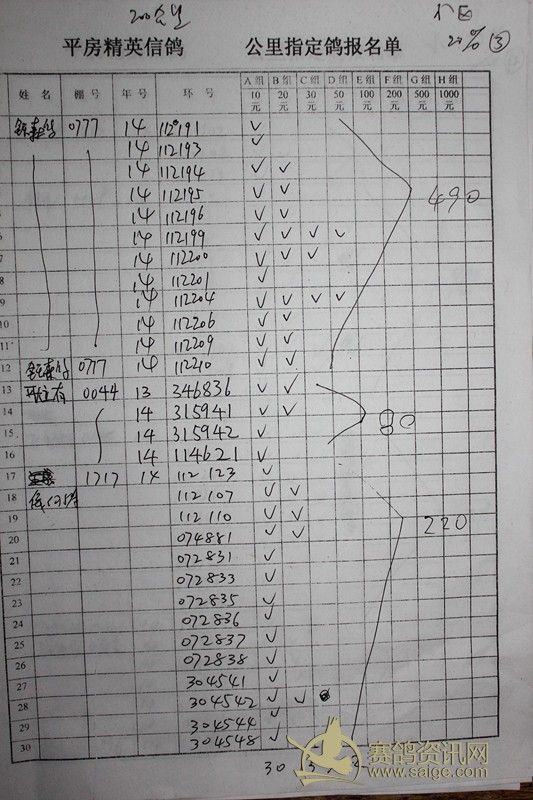 200公里
20% ③
平房精英信鸽 公里指定鸽报名单
姓名 棚号 年号 环号 A组 10元 B组 20元 C组 30元 D组 50元 E组 100元 F组 200元 G组 500元 H组 1000元
0777 14 112191 ✓
14 112193 ✓
14 112194 ✓ ✓
14 112195 ✓ ✓ 490
14 112196 ✓ ✓
6 14 112199 ✓ ✓ ✓ ✓
7 14 112200 ✓ ✓ ✓
8 14 112201 ✓
9 14 112204 ✓ ✓ ✓ ✓
10 14 112206 ✓ ✓
11 14 112209 ✓ ✓
12 0777 14 112210 ✓ ✓
13 0044 13 346836 ✓ ✓
14 14 315941 ✓ ✓ 80
15 14 315942 ✓
16 14 114621 ✓
17 1717 14 112123 ✓
18 112107 ✓ ✓
19 112110 ✓ ✓ 220
20 074881 ✓ ✓
21 072831 ✓
22 072833 ✓
23 072835 ✓
24 072836 ✓
25 072837 ✓
26 072838 ✓
27 304541 ✓
28 304542 ✓ ✓
29 304544 ✓
30 304548 ✓
30
赛鸽资讯网
www.saige.com